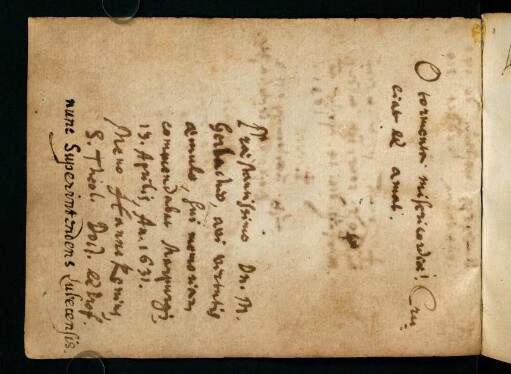 O tormenta misericordiae! Cru,
ciat et amat.
Praestantissimo Dn. M.
Gerlacho, avi virtutis
aemulo, sui memoriam
commendabat Marpurgi
13. Aprilis, An. 1631.
Meno Hannekenius,
S. Theol. Doct. et Prof.
nunc Superintendens Lubecensis.